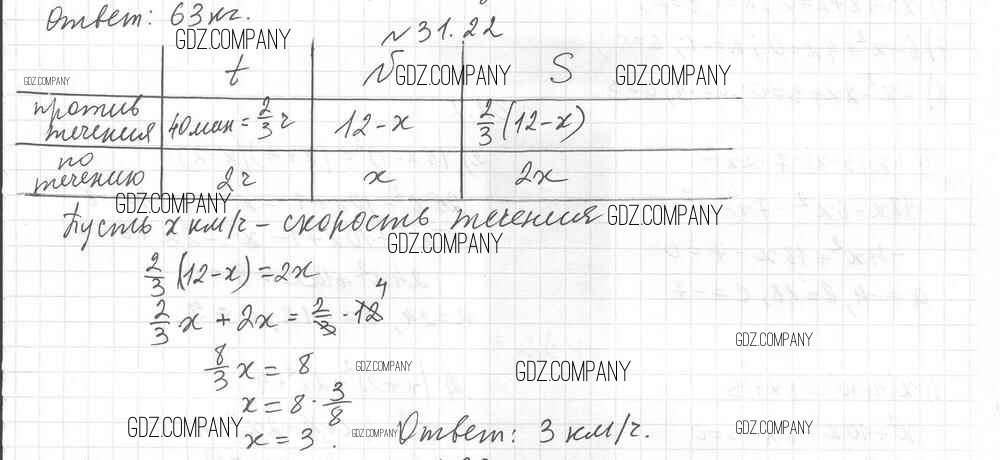 Ответ: 63 кг.
№31.22
GDZ.COMPANY
t V GDZ.COMPANY S GDZ.COMPANY
GDZ.COMPANY
против течения 40мин = 2/3 ч 12-x 2/3 (12-x)
по течению 2ч x 2x
GDZ.COMPANY
Пусть x км/ч - скорость течения GDZ.COMPANY
GDZ.COMPANY
2/3 (12-x) = 2x
2/3 x + 2x = 2/3 · 12 4
GDZ.COMPANY
8/3 x = 8 GDZ.COMPANY GDZ.COMPANY
x = 8 · 3/8
GDZ.COMPANY x = 3. GDZ.COMPANY Ответ: 3 км/ч. GDZ.COMPANY